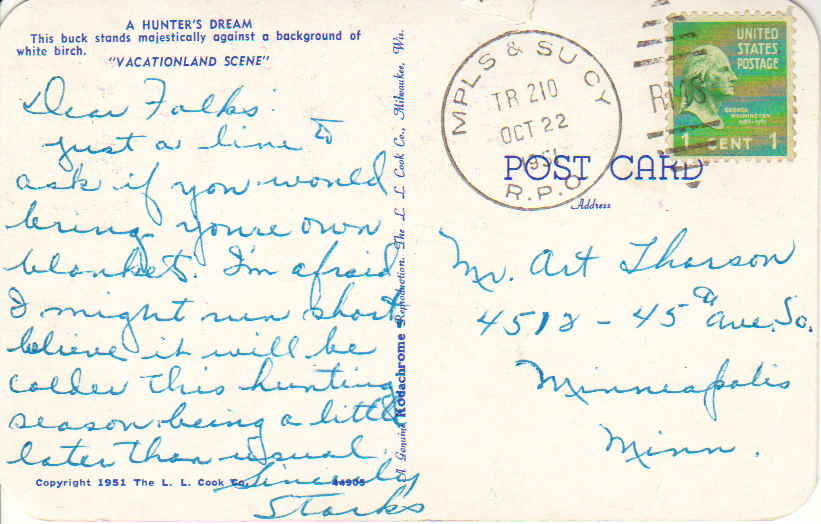 A HUNTER'S DREAM
This buck stands majestically against a background of
white birch.
"VACATIONLAND SCENE"
Dear Folks:
just a line to
ask if you would
bring youre own
blanket. I'm afraid
I might run short,
believe it will be
colder this hunting
season being a little
later than usual.
Sincerely
Starks
Copyright 1951 The L. L. Cook Co.
44905
A Genuine Kodachrome Reproduction. The L. L. Cook Co., Milwaukee, Wis.
MPLS & SU CY
TR 210
OCT 22
1951
R.P.O.
RMS
UNITED
STATES
POSTAGE
GEORGE
WASHINGTON
1 CENT 1
POST CARD
Address
Mr. Art Tharson
4512 - 45th ave. So.
Minneapolis
Minn.